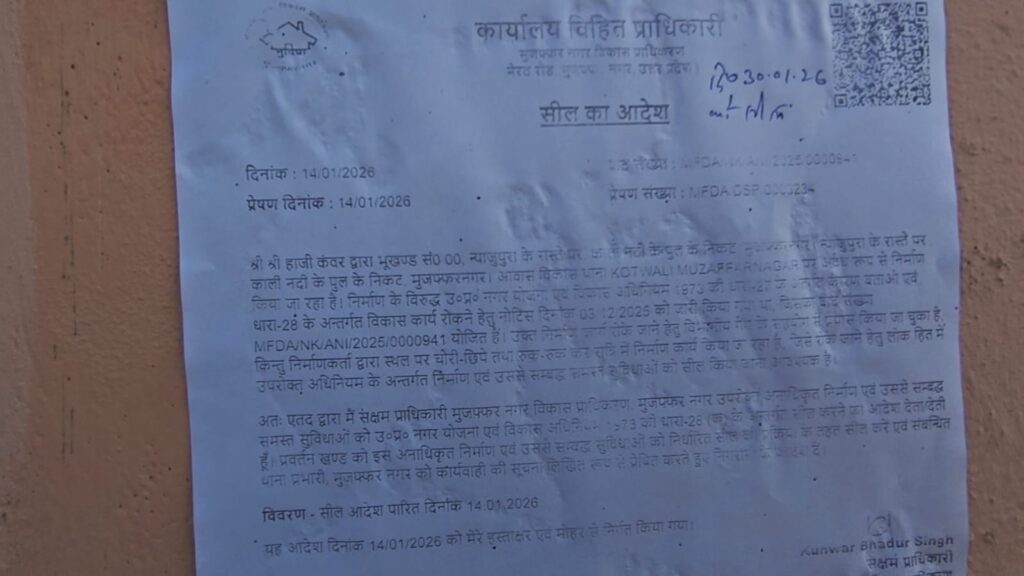 मुविप्रा
कार्यालय विहित प्राधिकारी
मुजफ्फर नगर विकास प्राधिकरण
मेरठ रोड, मुजफ्फर नगर, उत्तर प्रदेश
दि० 30.01.26
सील का आदेश
दिनांक : 14/01/2026
वाद संख्या : MFDA/NK/ANI/2025/0000941
प्रेषण दिनांक : 14/01/2026
प्रेषण संख्या : MFDA DSP 0000234
श्री श्री हाजी कंवर द्वारा भूखण्ड सं0 00, न्याजुपुरा के रास्ते पर काली नदी के पुल के निकट, मुजफ्फरनगर। न्याजुपुरा के रास्ते पर
काली नदी के पुल के निकट, मुजफ्फरनगर। आवास विकास थाना KOTWALI MUZAFFARNAGAR पर अवैध रूप से निर्माण
किया जा रहा है। निर्माण के विरुद्ध उ०प्र० नगर योजना एवं विकास अधिनियम 1973 की धारा-27 के कारण बताओ एवं
धारा-28 के अन्तर्गत विकास कार्य रोकने हेतु नोटिस दिनांक 03.12.2025 को जारी किया गया था, जिसका वाद संख्या
MFDA/NK/ANI/2025/0000941 योजित है। उक्त निर्माण कार्य रोके जाने हेतु किया जा चुका है,
किन्तु निर्माणकर्ता द्वारा स्थल पर चोरी-छिपे तथा रुक-रुक कर रात्रि में निर्माण कार्य किया जा रहा है, जिसे रोके जाने हेतु लोक हित में
उपरोक्त अधिनियम के अन्तर्गत निर्माण एवं उससे सम्बद्ध समस्त सुविधाओं को सील किया जाना आवश्यक है।
अतः एतद द्वारा मैं सक्षम प्राधिकारी मुजफ्फर नगर विकास प्राधिकरण, मुजफ्फर नगर उपरोक्त अनाधिकृत निर्माण एवं उससे सम्बद्ध
समस्त सुविधाओं को उ०प्र० नगर योजना एवं विकास अधिनियम 1973 की धारा-28 (क) के अन्तर्गत सील करने का आदेश देता/देती
हूँ। प्रवर्तन खण्ड को इस अनाधिकृत निर्माण एवं उससे सम्बद्ध सुविधाओं को निर्धारित सील की प्रक्रिया के तहत सील करें एवं संबन्धित
थाना प्रभारी, मुजफ्फर नगर को कार्यवाही की सूचना लिखित रूप से प्रेषित करते हुए
विवरण - सील आदेश पारित दिनांक 14.01.2026
यह आदेश दिनांक 14/01/2026 को मेरे हस्ताक्षर एवं मोहर से निर्गत किया गया।
Kunwar Bhadur Singh
सक्षम प्राधिकारी